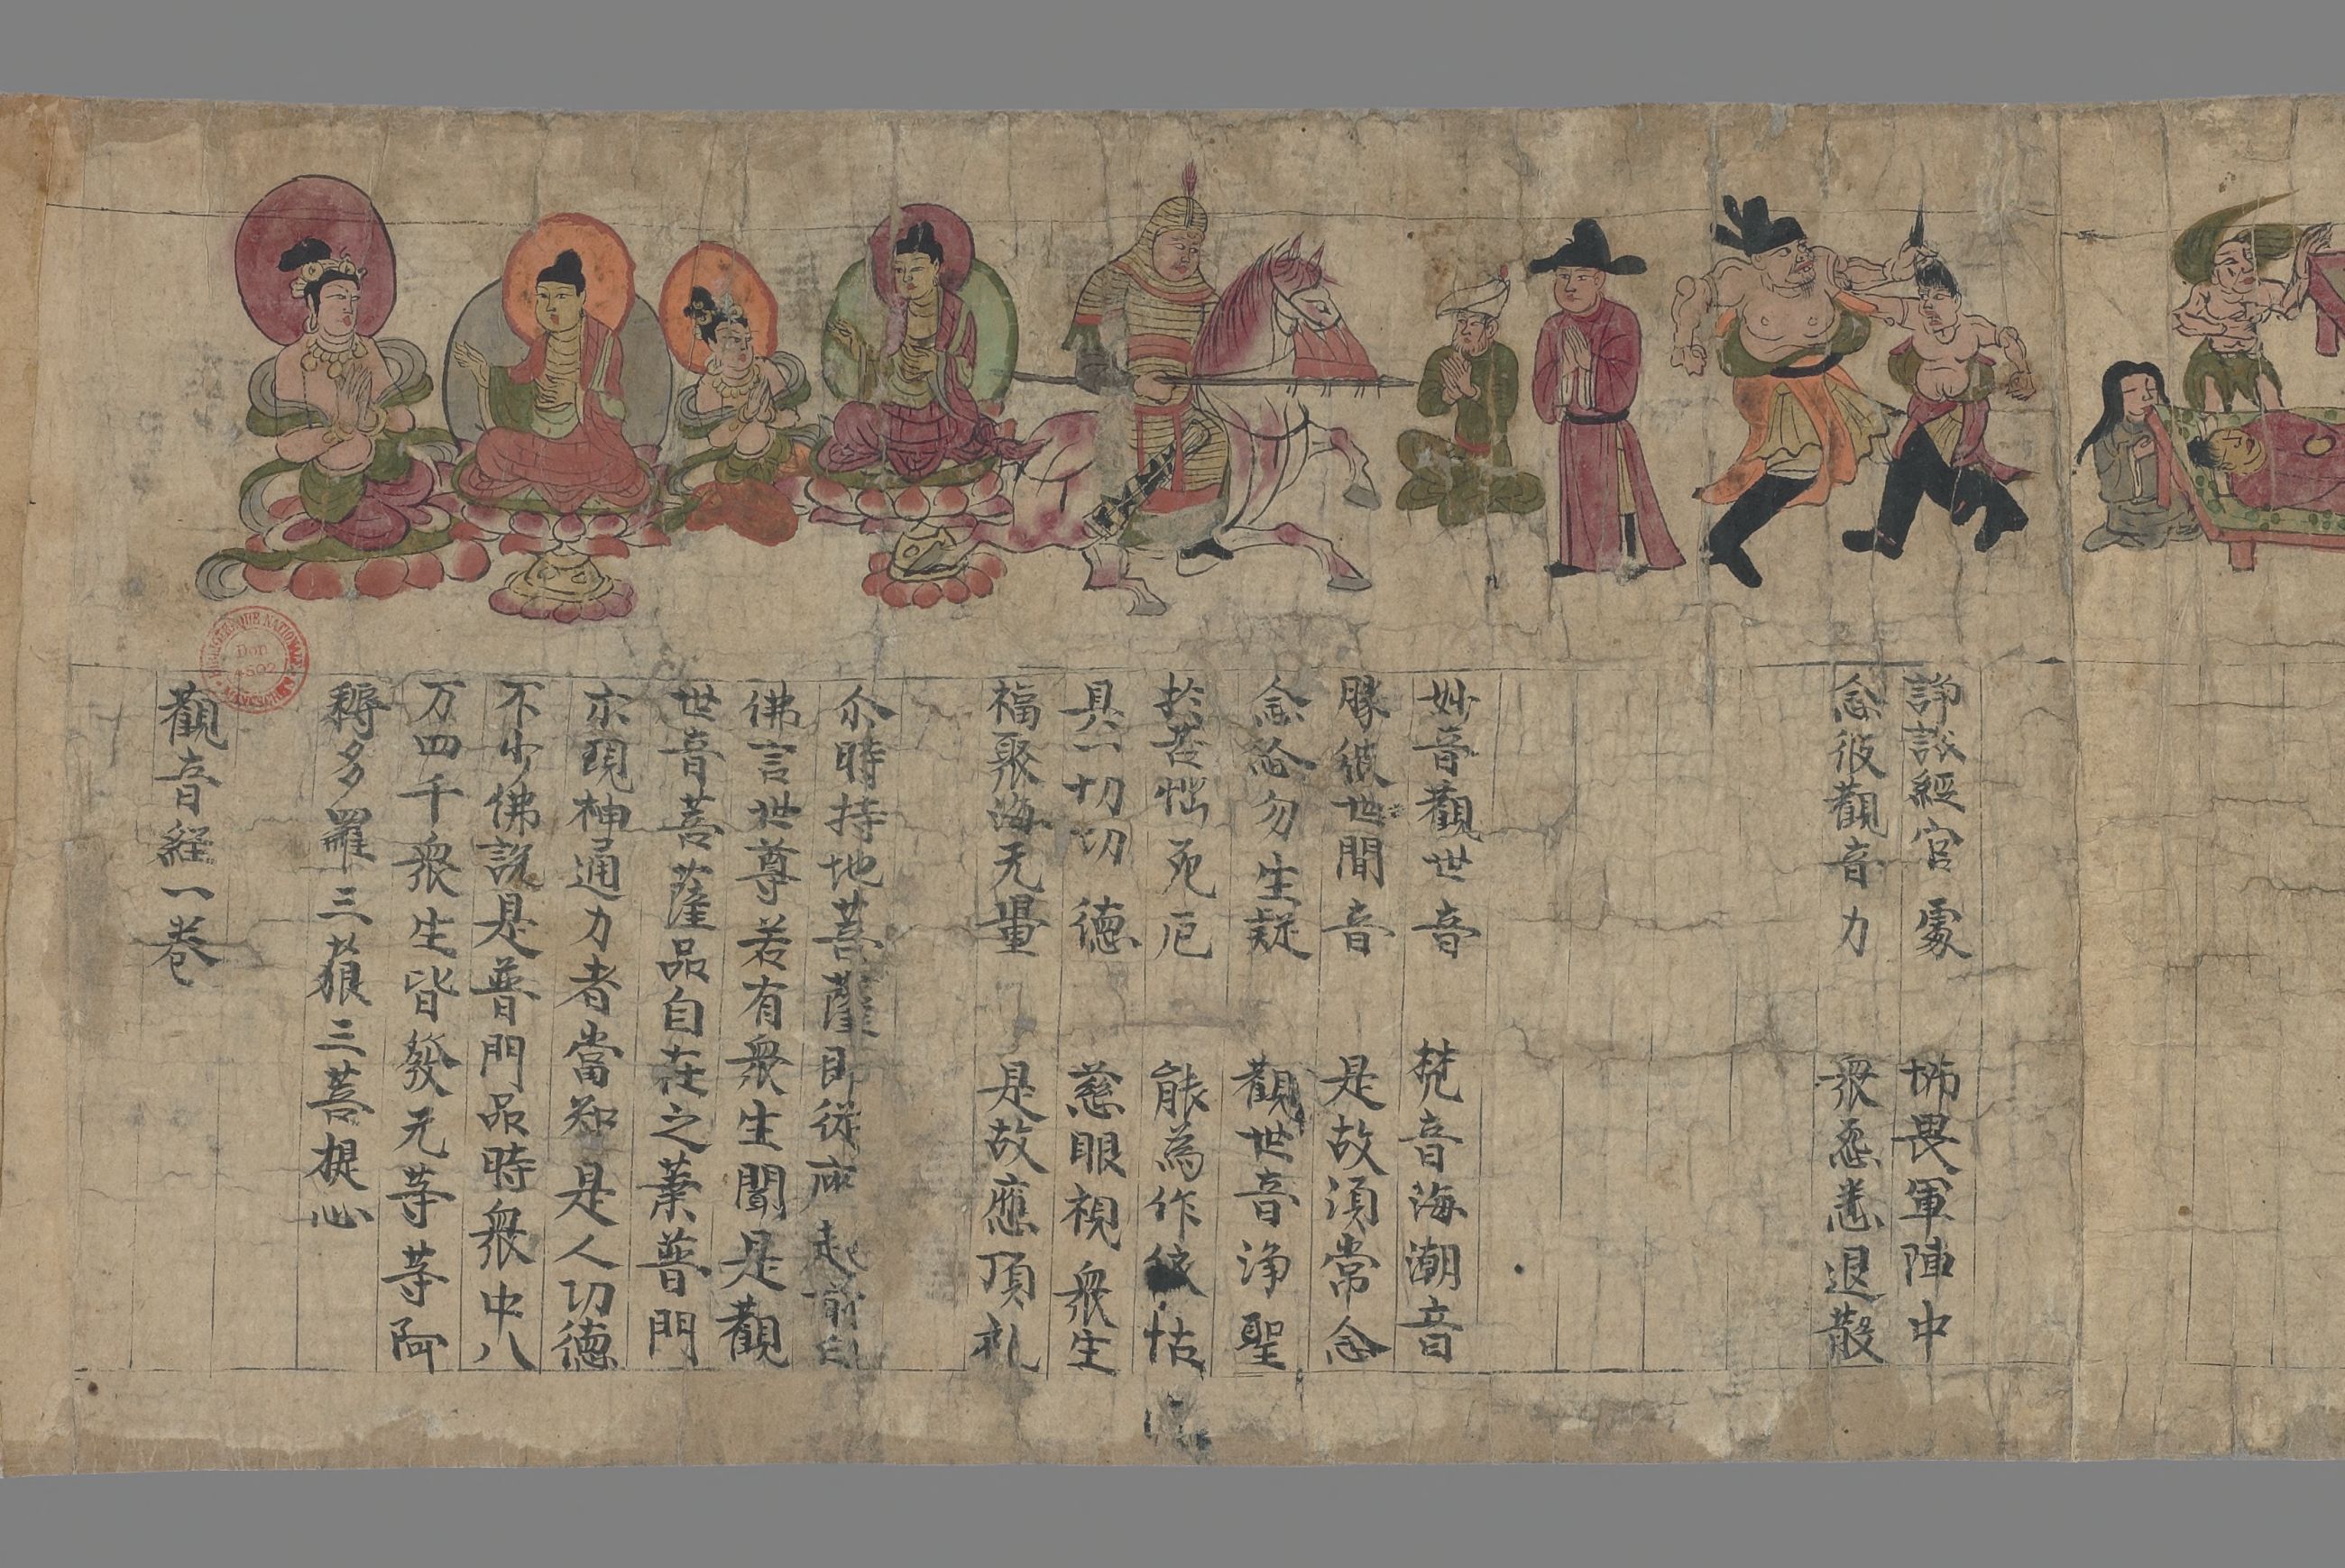 諍訟經官處　怖畏軍陣中
念彼觀音力　衆惌悉退散
妙音觀世音　梵音海潮音
勝彼世間音　是故湏常念
念念勿生疑　觀世音浄聖
於苦惱死厄　能為作依怙
具一切切德　慈眼視衆生
福聚海无量　是故應頂礼
尒時持地菩薩即從座起前白
佛言世尊若有衆生聞是觀
世音菩薩品自在之業普門
示現神通力者當知是人切德
不少佛說是普門品時衆中八
万四千衆生皆發无等等阿
耨多羅三藐三菩提心
觀音經一卷
BIBLIOTHÈQUE NATIONALE
Don
4502
MANUSCRITS